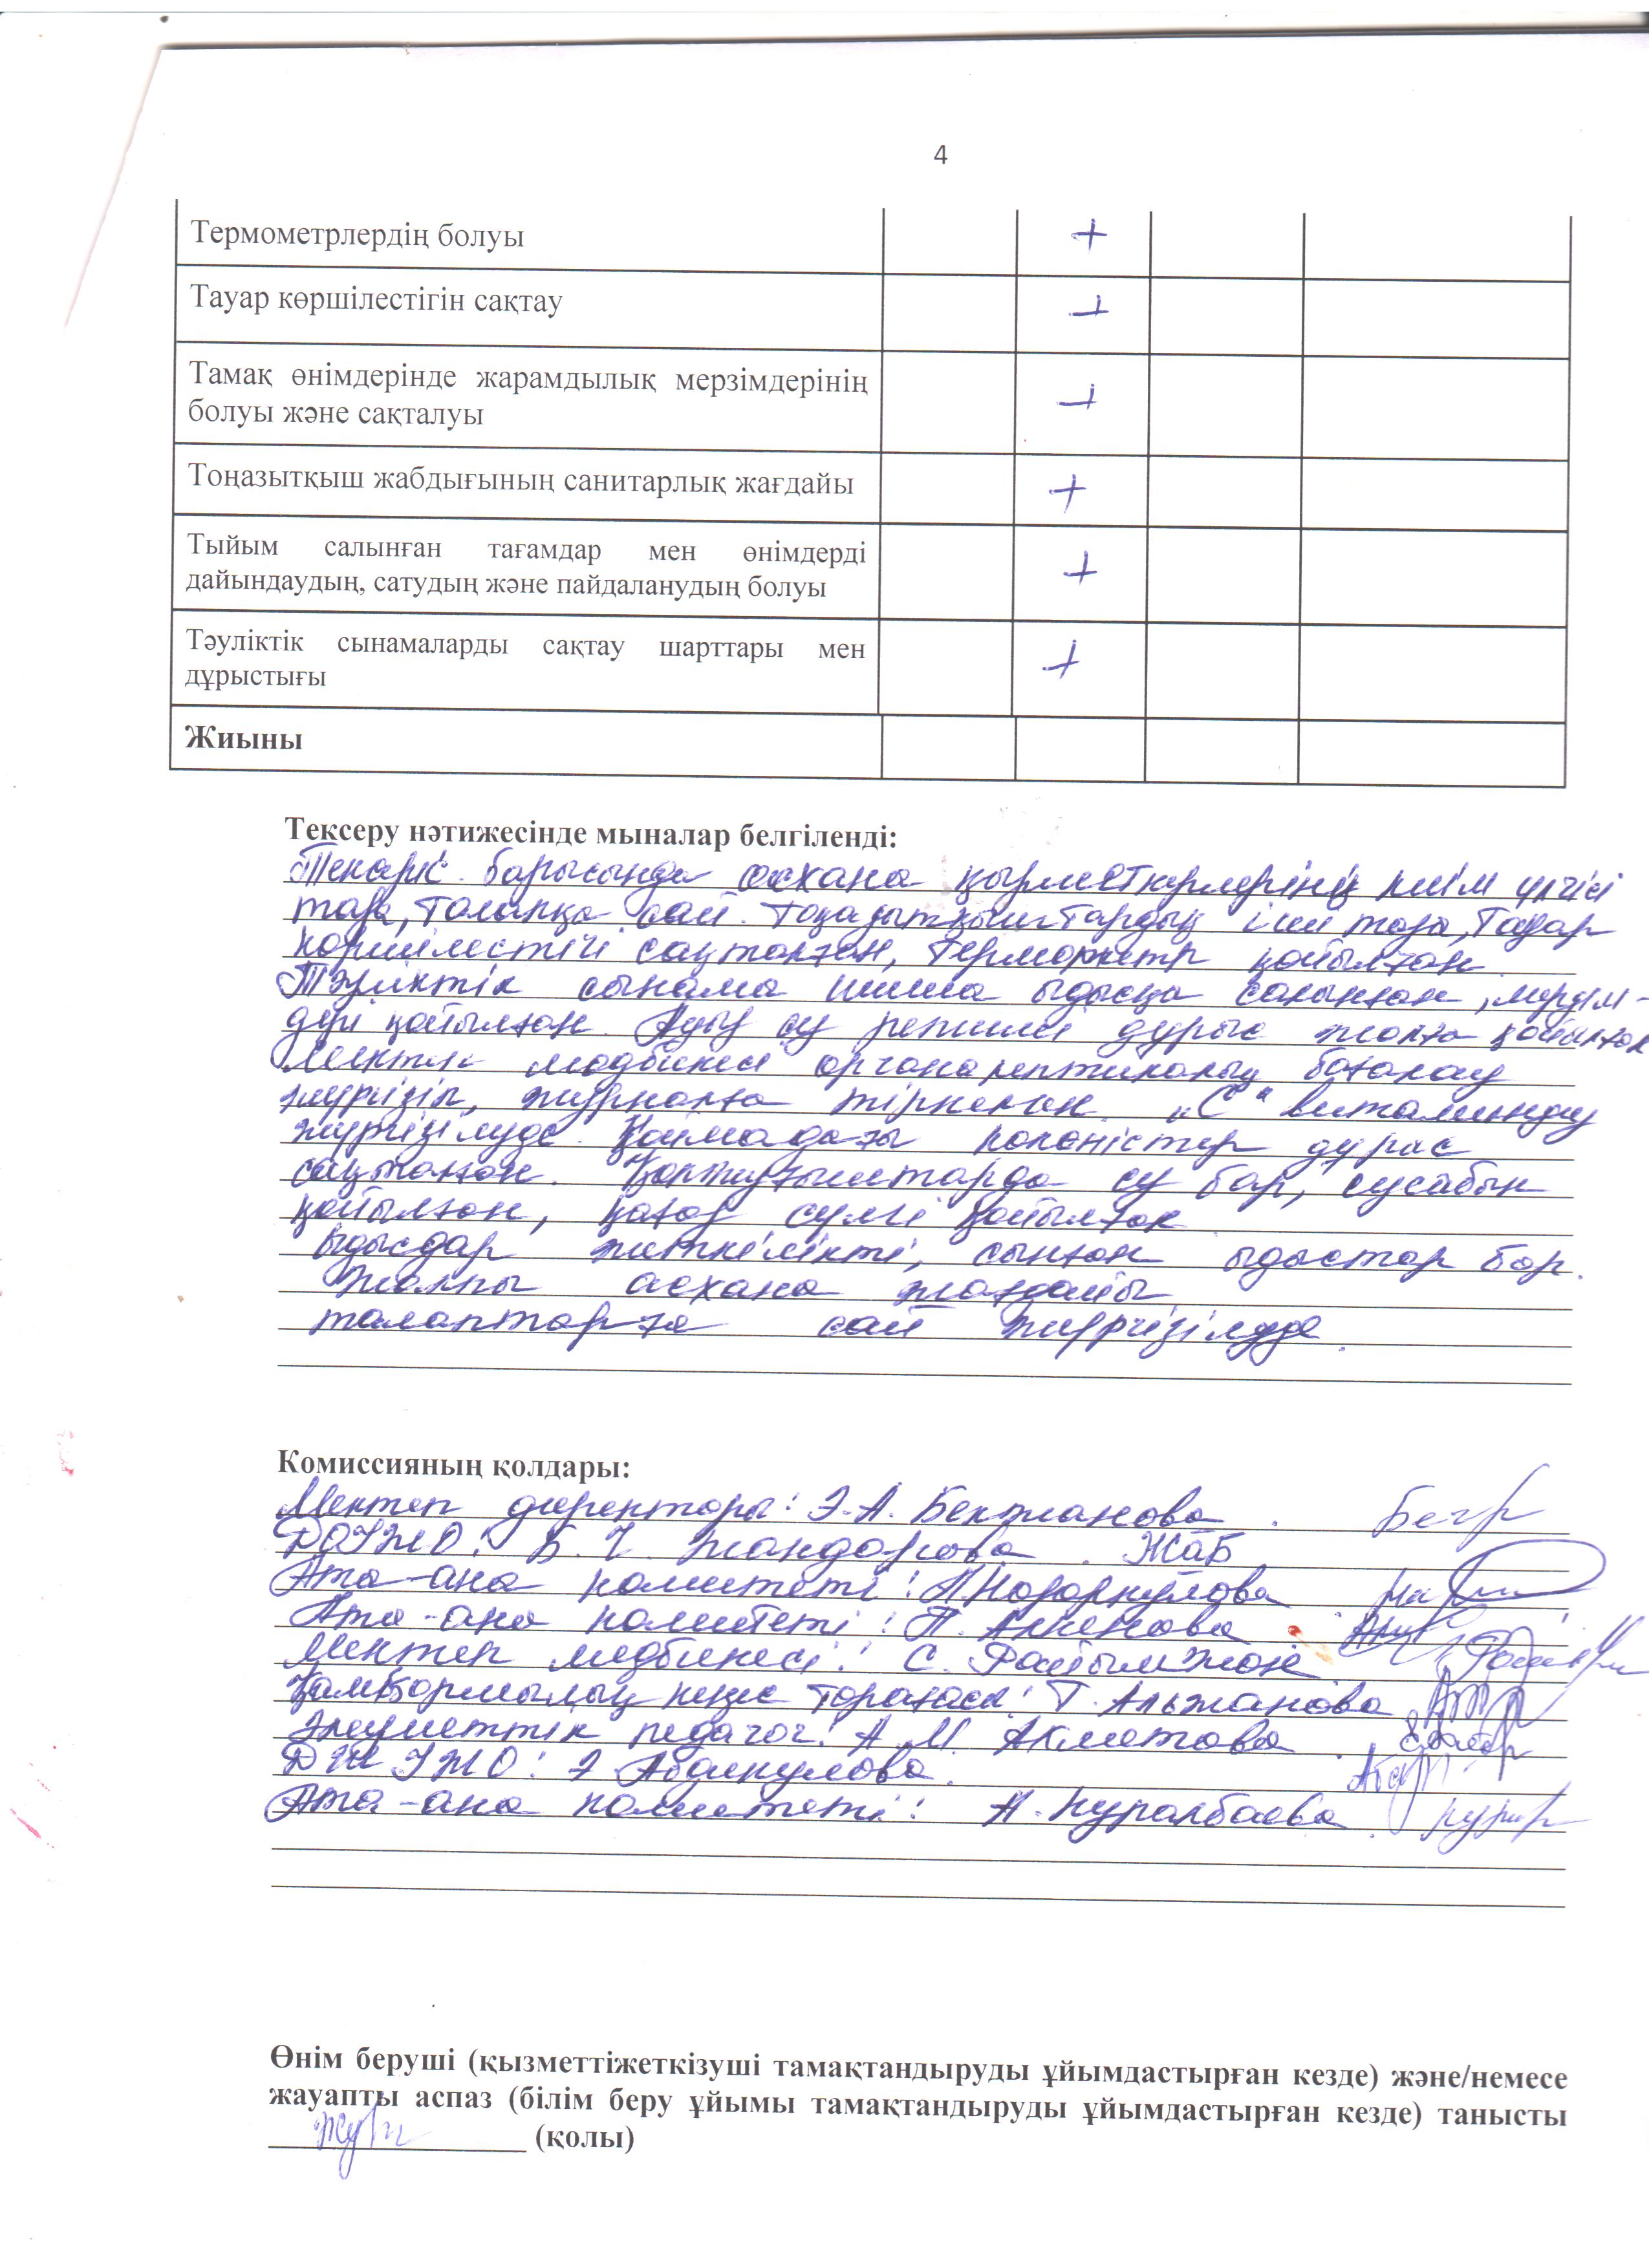 4
Термометрлердің болуы +
Тауар көршілестігін сақтау +
Тамақ өнімдерінде жарамдылық мерзімдерінің
болуы және сақталуы +
Тоңазытқыш жабдығының санитарлық жағдайы +
Тыйым салынған тағамдар мен өнімдерді
дайындаудың, сатудың және пайдаланудың болуы +
Тәуліктік сынамаларды сақтау шарттары мен
дұрыстығы +
Жиыны
Тексеру нәтижесінде мыналар белгіленді:
барысында асхана қызметкерлерінің киім үлгісі
таза, талапқа сай. Тоңазытқыштардың іші таза, Тауар
көршілестігі сақталған, термометр қойылған.
Тәуліктік сынама шыны ыдысқа салынған, мерзім-
дері қойылған. Ауыз су режимі дұрыс жолға қойылған
Мектеп медбикесі органолептикалық бағалау
жүргізіп, журналға тіркелген. „С" витаминдеу
жүргізілуде. Қоймадағы көкөністер дұрыс
сақталған. Қолжуғыштарда су бар, сусабын
қойылған, қағаз сүлгі қойылған
Ыдысдар жеткілікті, сынған ыдыстар бар.
Жалпы асхана жағдайы
талаптарға сай жүргізілуде.
Комиссияның қолдары:
Мектеп директоры: Э.А. Бекжанова.
ДОІЖО: Б. Жандарова. ЖаБ
Ата-ана комитеті: Назарқулова
Ата-ана комитеті: П. Акенова
Мектеп медбикесі: С. Райымжан
Қамқоршылық кеңес төрағасы: Т. Альжанова
Әлеуметтік педагог: А.М. Ахметова.
ДТІЖО: Э. Абдикулова.
Ата-ана комитеті: А. Нуралбаева.
Өнім беруші (қызметтіжеткізуші тамақтандыруды ұйымдастырған кезде) және/немесе
жауапты аспаз (білім беру ұйымы тамақтандыруды ұйымдастырған кезде) танысты
(қолы)